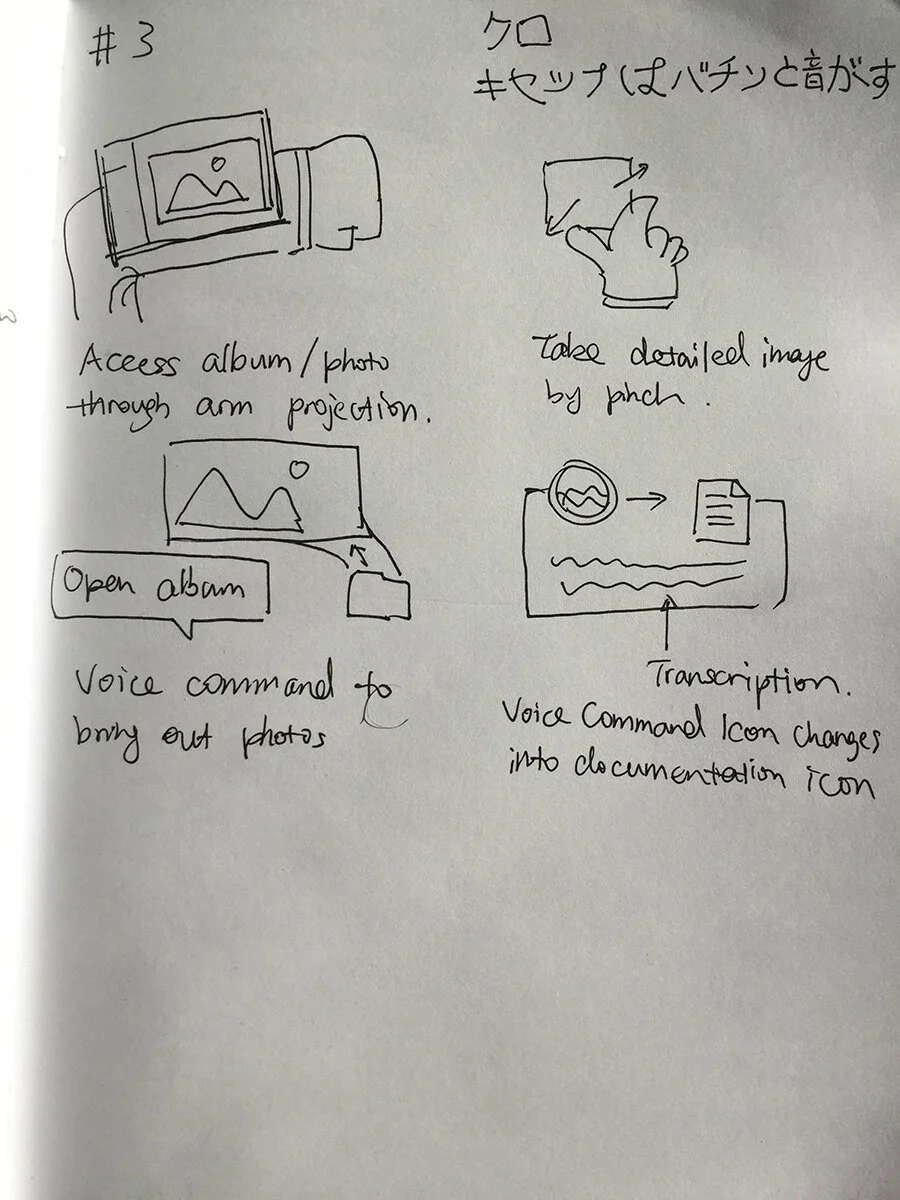 #3
クロ
キャップはバチンと音がす
Access album/photo
through arm projection.
Take detailed image
by pinch.
Open album
Voice command to
bring out photos
Transcription.
Voice Command Icon changes
into documentation icon